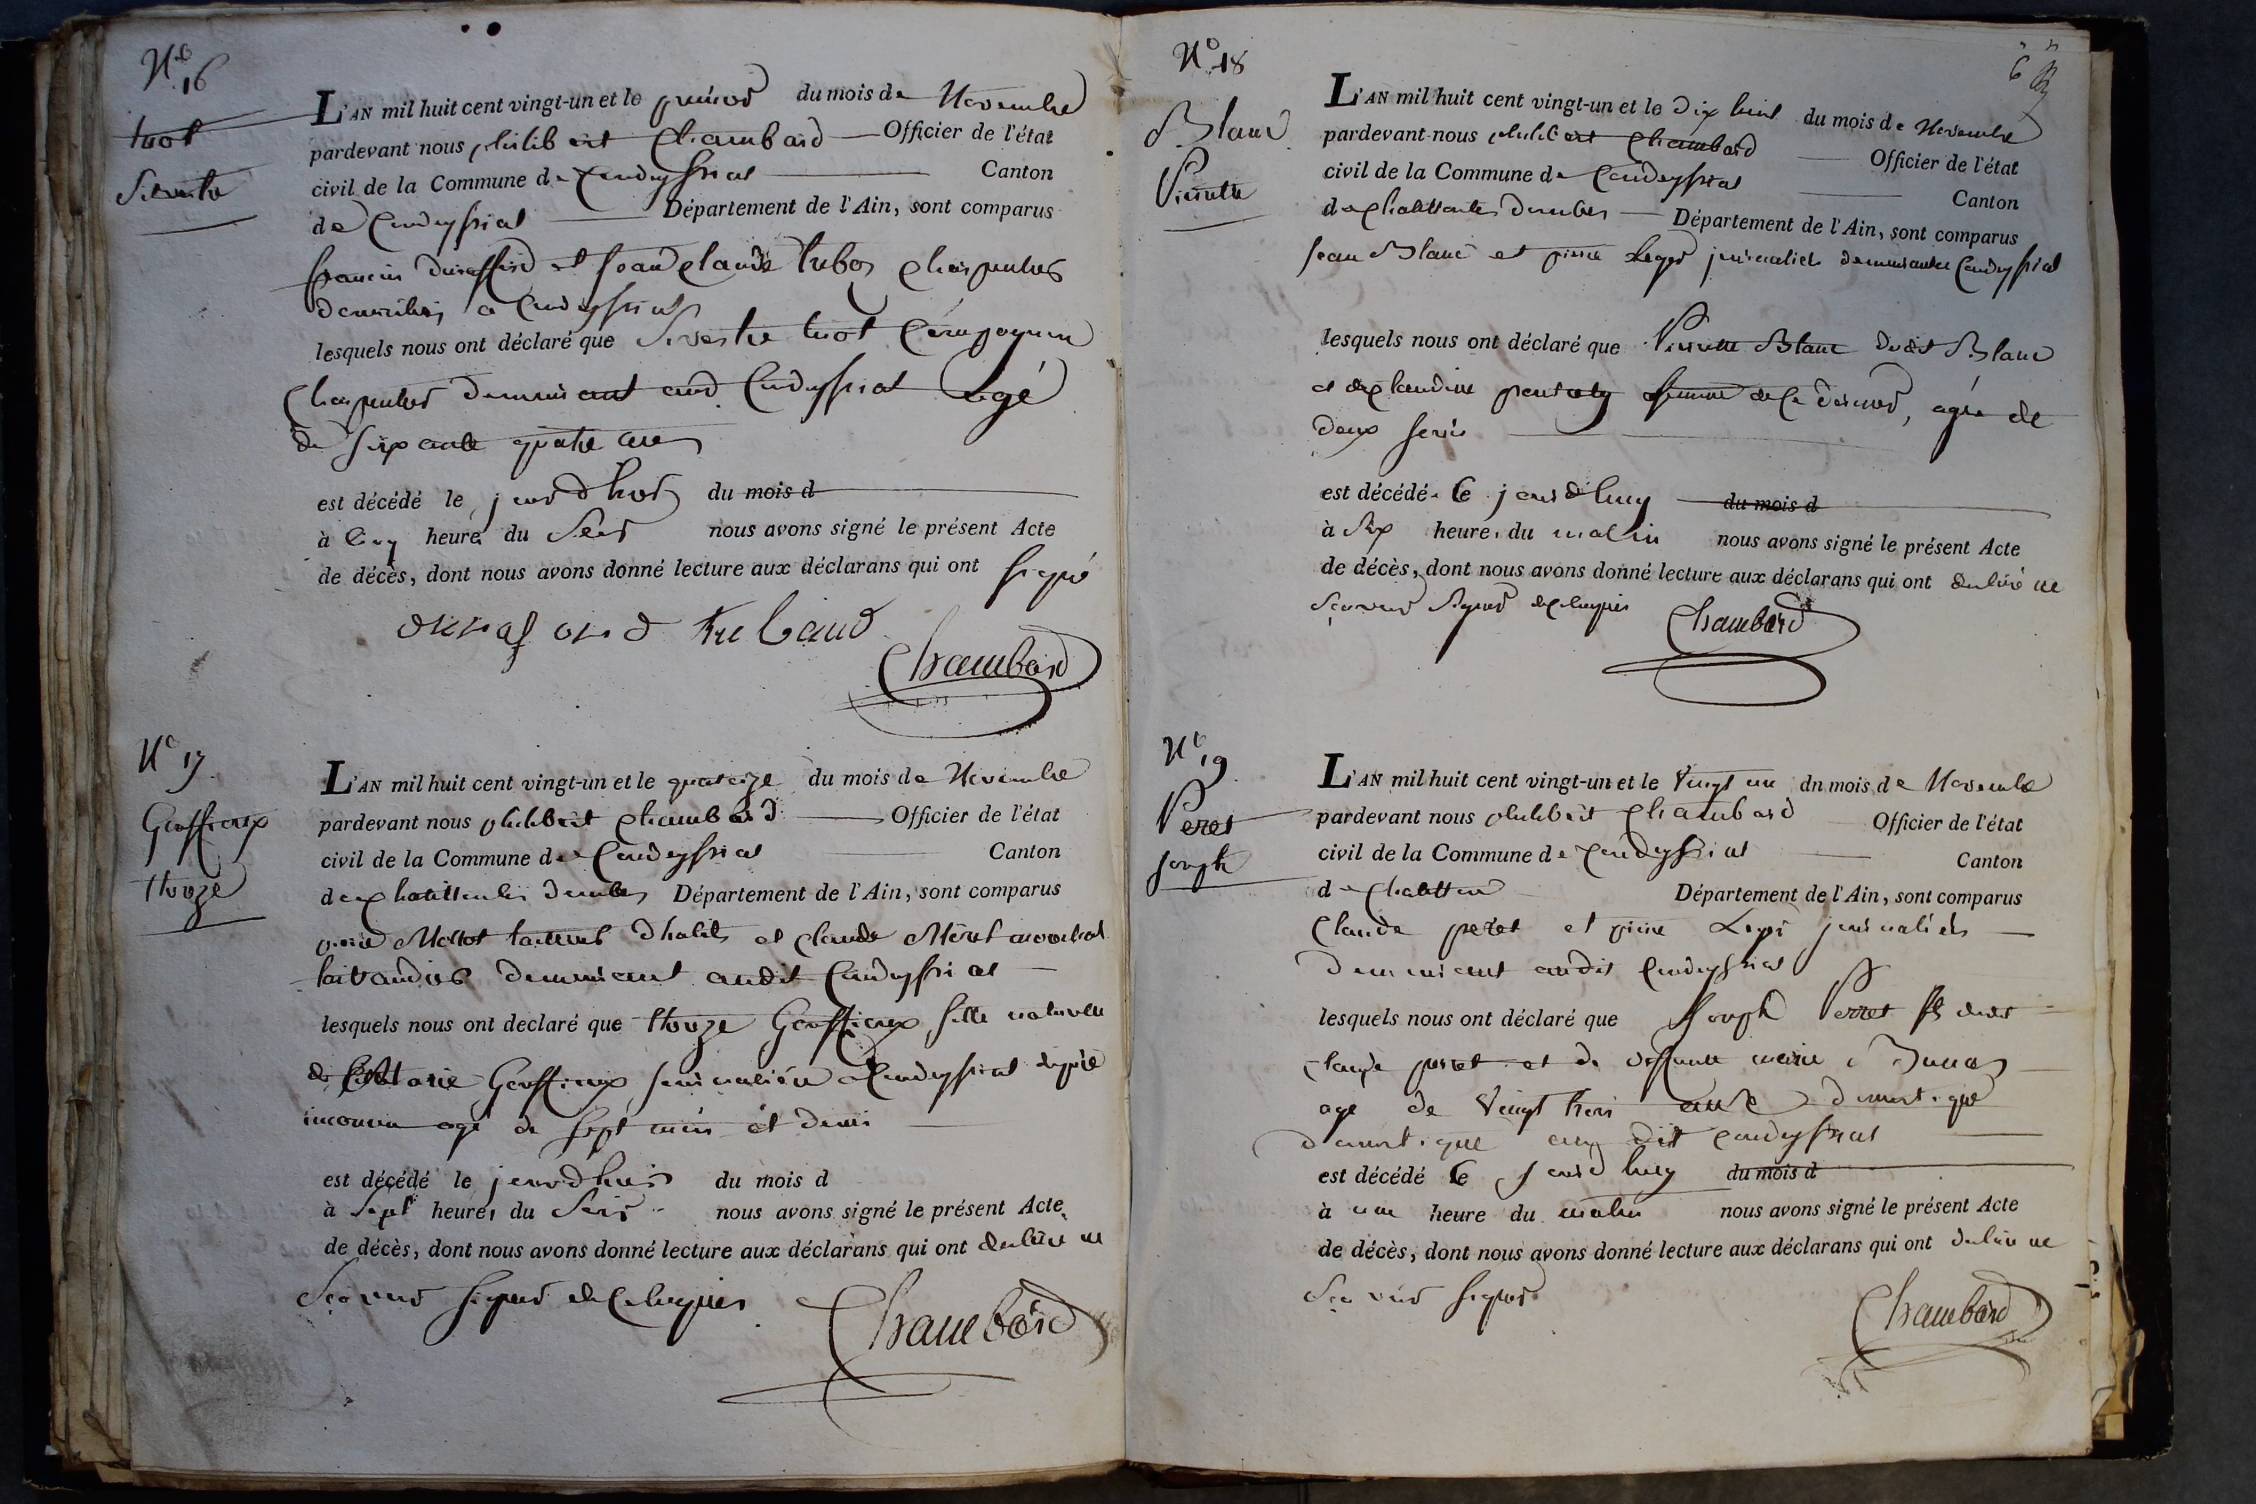 N.o 16
tuot
Silvestre
L'AN mil huit cent vingt-un et le premier du mois de Novembre
pardevant nous philibert Chambard Officier de l'état
civil de la Commune de Condeyssiat Canton
de Condeyssiat Département de l'Ain, sont comparus
francois et Jean claude charpentiers
a Condeyssiat
lesquels nous ont déclaré que Sivestre tuot
Charpentier demeurant aud. Condeyssiat agé
de soixante quatre ans
est décédé le jourdhui du mois d
à heure du Soir nous avons signé le présent Acte
de décès, dont nous avons donné lecture aux déclarans qui ont signé
durafourd trubaud
Chambard
N.o 17
Geoffray
L'AN mil huit cent vingt-un et le quatorze du mois de Novembre
pardevant nous philibert Chambard Officier de l'état
civil de la Commune de Condeyssiat Canton
de chatillon les dombes Département de l'Ain, sont comparus
pierre tailleur dhabits et claude
demeurant audit Condeyssiat
lesquels nous ont declaré que fille naturelle
de Marie a Condeyssiat
inconnu agé de sept mois et demi
est décédé le jourdhui du mois d
à Sept heures du Soir nous avons signé le présent Acte
de décès, dont nous avons donné lecture aux déclarans qui ont declaré ne
Scavoir signer de ce requis
Chambard
6
N.o 18
Blanc
Pierrette
L'AN mil huit cent vingt-un et le dix huit du mois de Novembre
pardevant nous philibert Chambard Officier de l'état
civil de la Commune de Condeyssiat Canton
de chatillon les dombes Département de l'Ain, sont comparus
Jean Blanc et pierre Leger journaliers demeurants Condeyssiat
lesquels nous ont déclaré que Pierrette Blanc dudit Blanc
et de claudine femme de ce dernier, agée de
deux
est décédé le jourdhuy du mois d
à Six heure du matin nous avons signé le présent Acte
de décès, dont nous avons donné lecture aux déclarans qui ont declaré ne
Scavoir Signer de ce requis
Chambard
N.o 19
Peret
Joseph
L'AN mil huit cent vingt-un et le Vingt un dn mois de Novembre
pardevant nous philibert Chambard Officier de l'état
civil de la Commune de Condeyssiat Canton
de Chatillon Département de l'Ain, sont comparus
Claude peret et pierre Leger journaliers
demeurant audit Condeyssiat
lesquels nous ont déclaré que Joseph Perret fils dudit
claude peret et de deffunte marie
agé de Vingt trois ans domestique
domestique au dit Condeyssiat
est décédé le jourdhuy du mois d
à une heure du matin nous avons signé le présent Acte
de décès, dont nous avons donné lecture aux déclarans qui ont declaré ne
Scavoir signer
Chambard